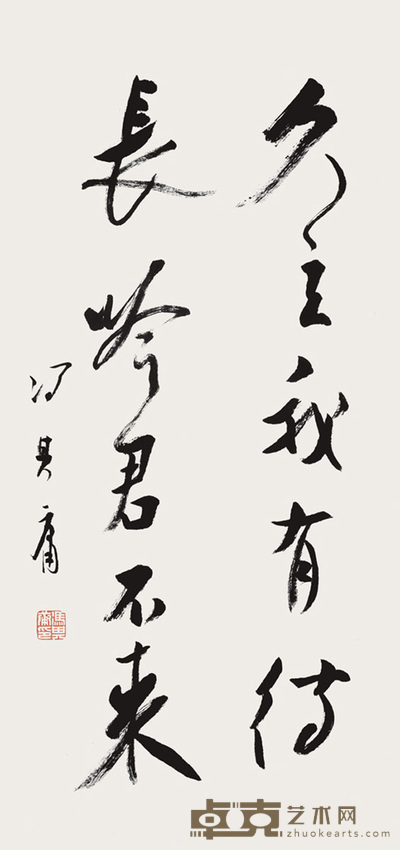 久立我有待
長吟君不来
冯其庸
馮其庸印
卓克艺术网
zhuokearts.com